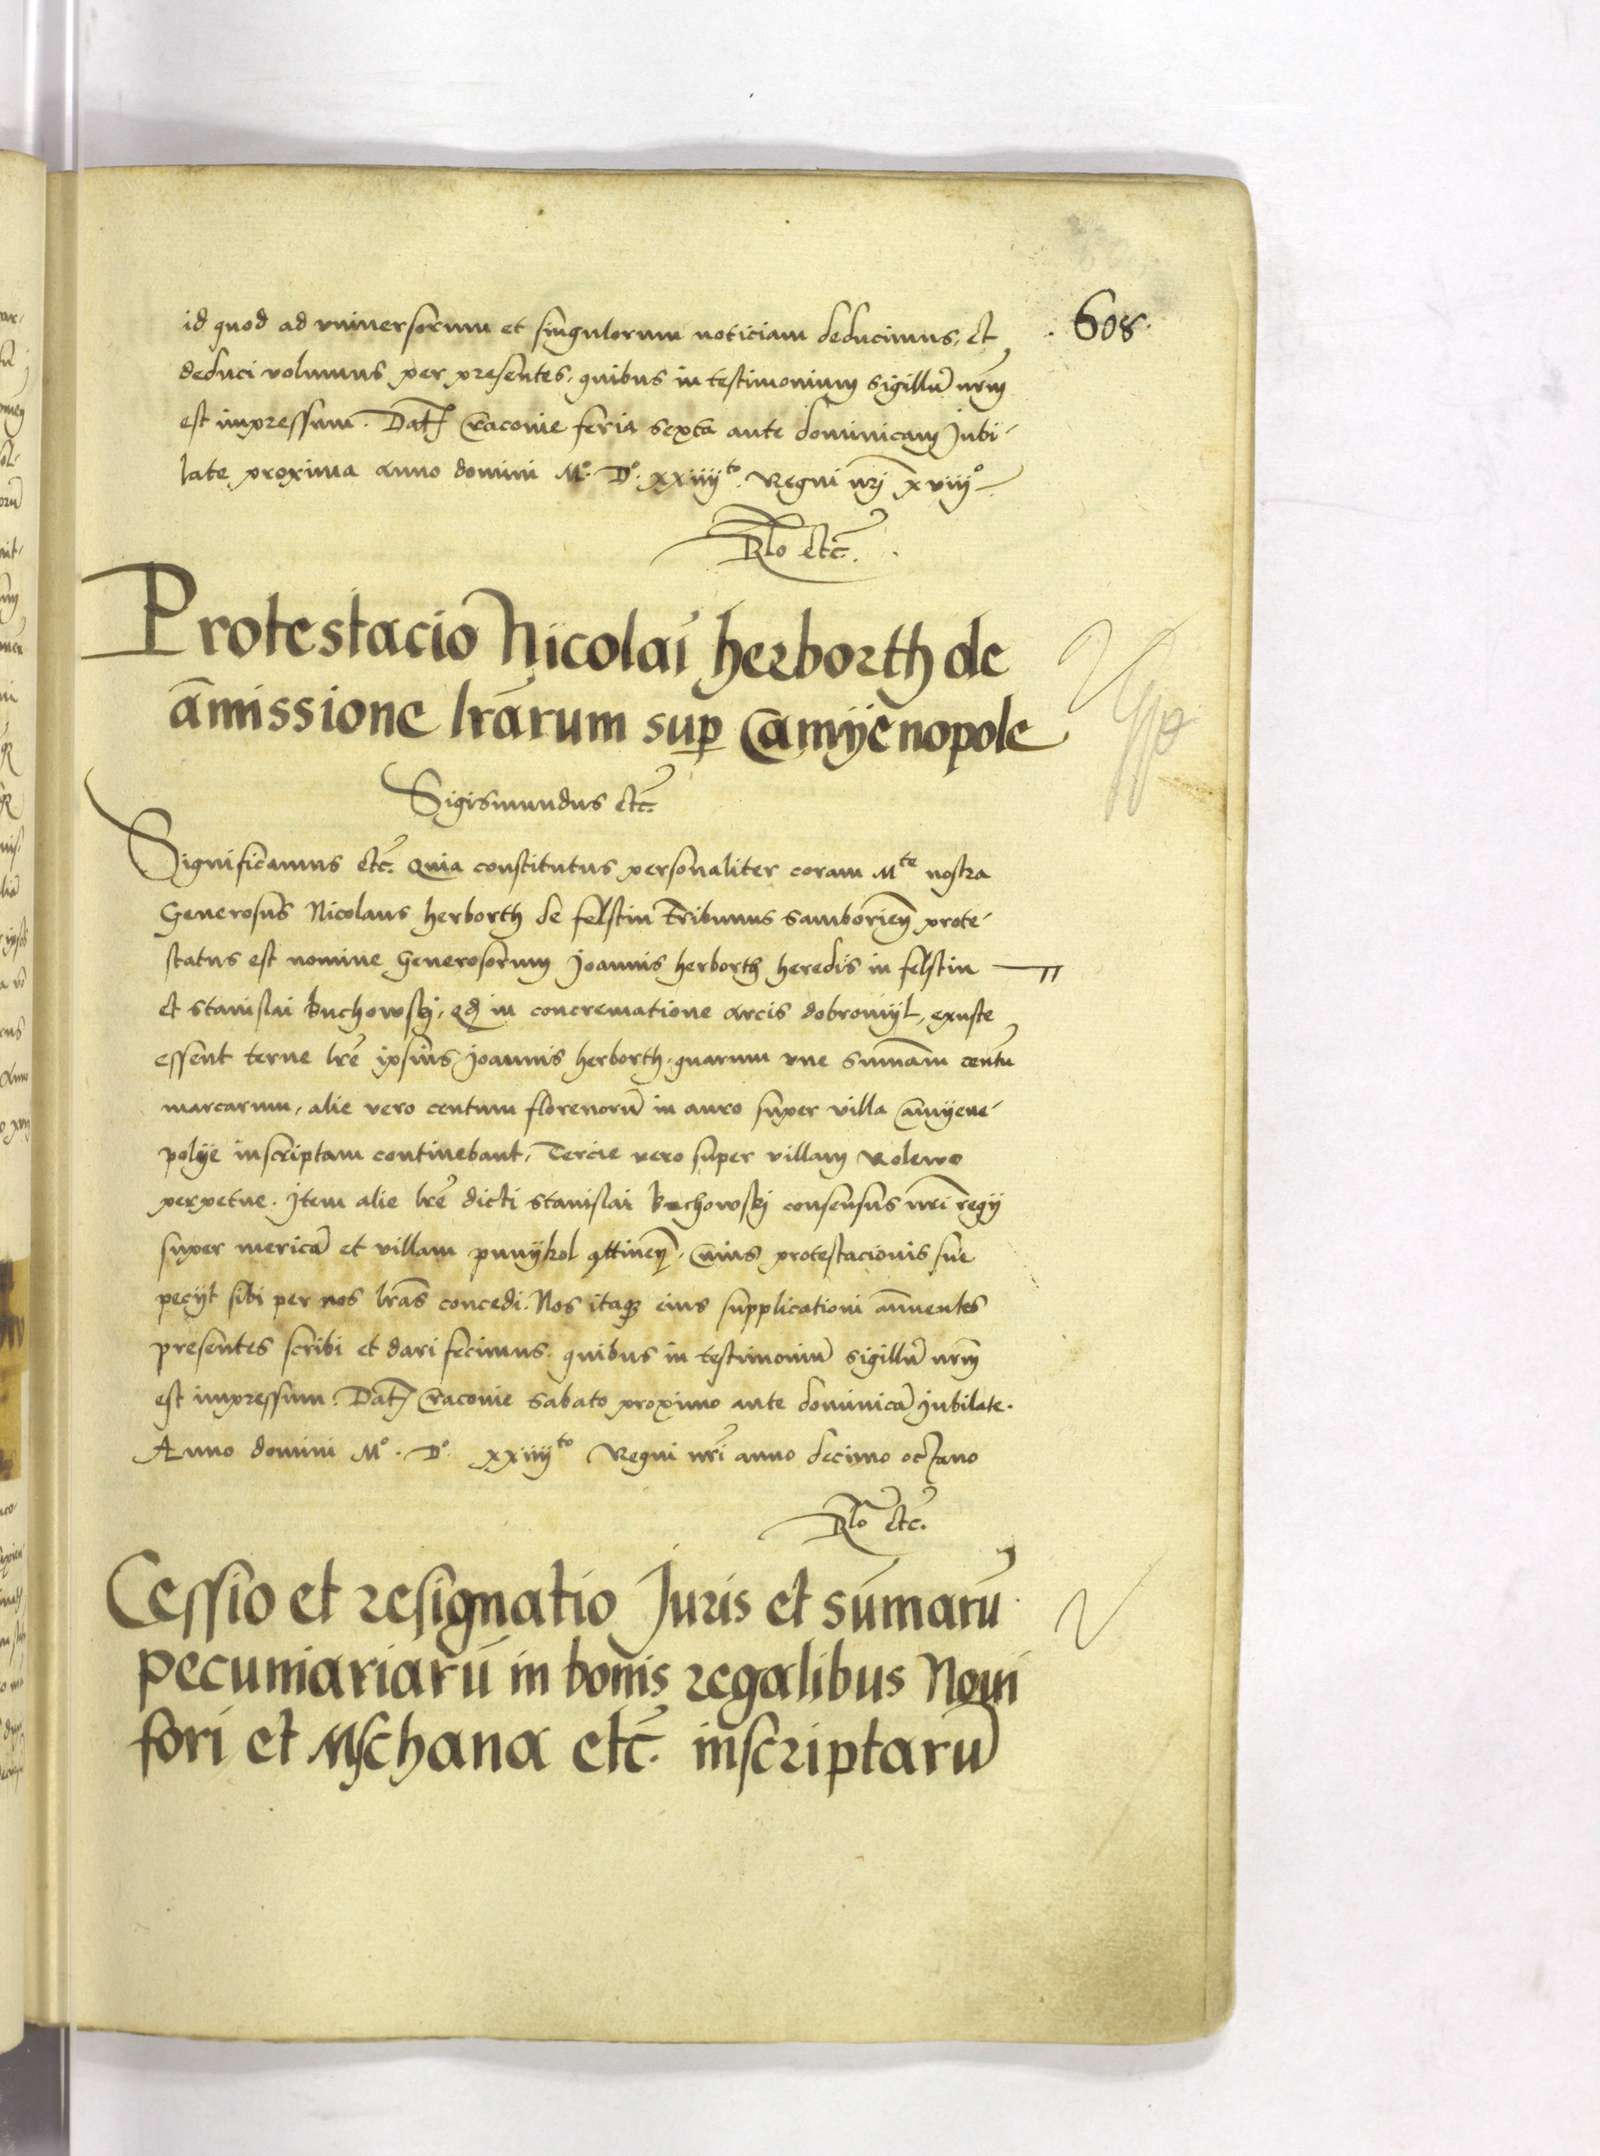 608
id quod ad vniuersorum et singulorum noticiam deducimus, et
deduci volumus per presentes, quibus in testimonium sigillū nrm̄
est impressum. Dat̄ Cracouie feria sexta ante dominicam Jubi-
late proxima anno domini Mº. Dº. xxiiijto. Regni nr̄j xviijº
Rlo etc̄.
Protestacio Nicolai herborth de
am̄issione lrārum sup Camyenopole
Sigismundus etc̄.
Significamus etc̄. Quia constitutus personaliter coram Mte nostra
Generosus Nicolaus herborth de felstin Tribunus Samborien̄ prote-
status est nomine Generosorum Joannis herborth heredis in felstin
et stanislai kuchowskj, qđ in concrematione arcis dobromyl, exuste
essent terne lrē ipsius Joannis herborth, quarum vne sum̄am centū
marcarum, alie vero centum florenorū in auro super villa Camyene-
polye inscriptam continebant, Tercie vero super villam Rolewo
perpetue. Item alie lrē dicti stanislai kuchowskj consensus nr̄i regij
super mericā et villam punykol ꝯtinen̄, Cuius protestacionis sue
pecijt sibi per nos lrās concedi. Nos itaqꝫ eius supplicationi an̄uentes
presentes scribi et dari fecimus, quibus in testimoniū sigillū nrm̄
est impressum. Dat̄ Cracouie Sabato proximo ante dominicā Jubilate.
Anno domini Mº. Dº. xxiiijto Regni nr̄i anno decimo octauo
Rlo etc̄.
Cessio et resignatio Juris et sum̄arū
pecuniariarū in bonis regalibus Noui
fori et Mschana etc̄. inscriptarū